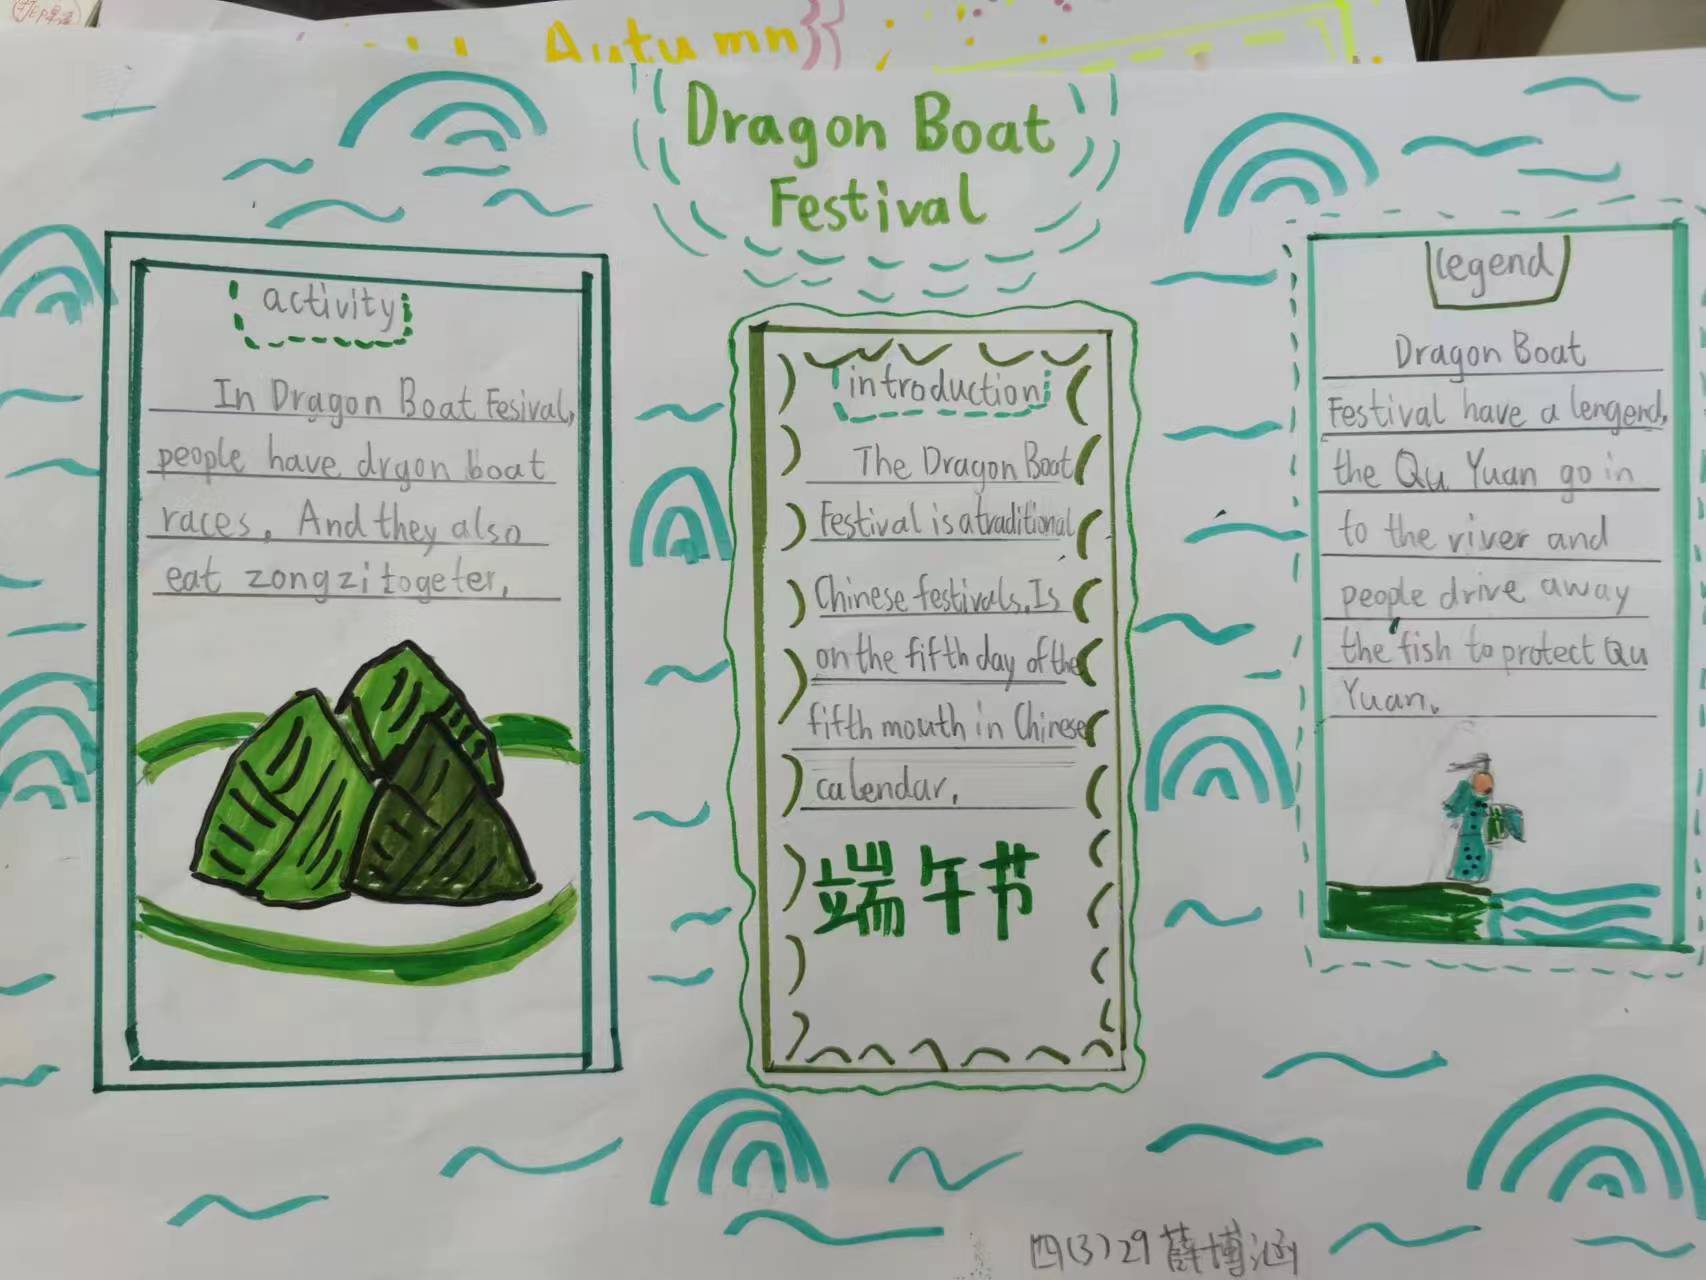 Autumn
Dragon Boat
Festival
activity
In Dragon Boat Fesival,
people have drgon boat
races. And they also
eat zongzi togeter.
introduction
The Dragon Boat
Festival is a traditional
Chinese festivals. Is
on the fifth day of the
fifth mouth in Chinese
calendar.
端午节
legend
Dragon Boat
Festival have a lengend,
the Qu Yuan go in
to the river and
people drive away
the fish to protect Qu
Yuan.
四(3)29薛博涵